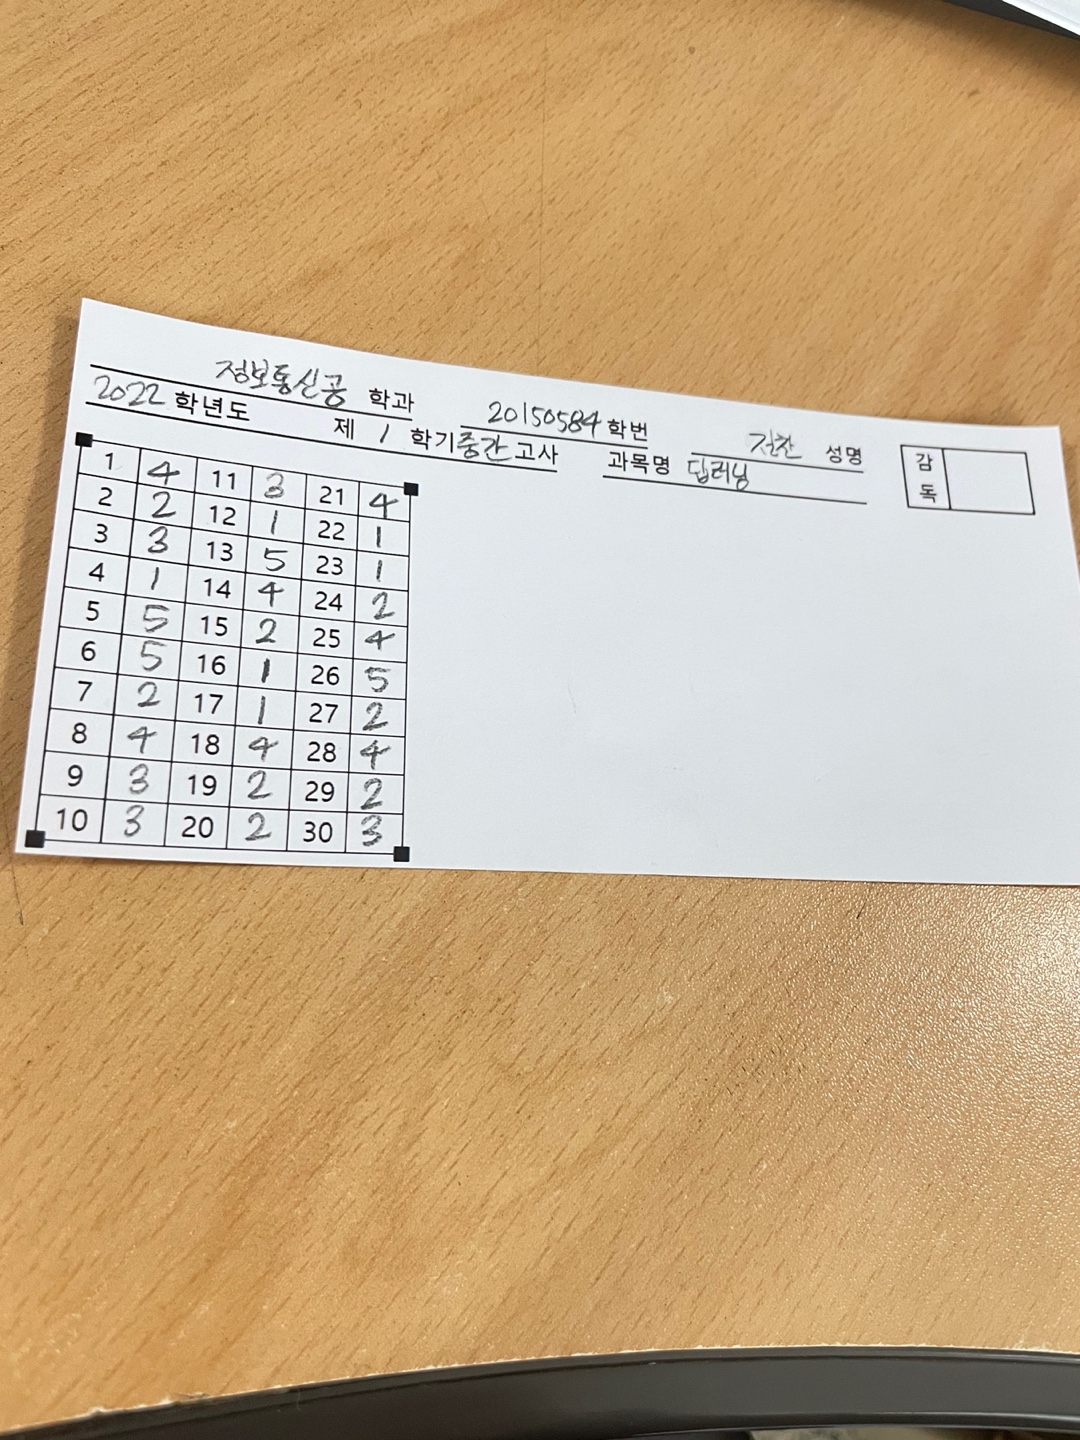 정보통신공 학과 20150584 학번 전찬 성명 감독
2022 학년도 제 1 학기 중간 고사 과목명 딥러닝
1 4 11 3 21 4
2 2 12 1 22 1
3 3 13 5 23 1
4 1 14 4 24 2
5 5 15 2 25 4
6 5 16 1 26 5
7 2 17 1 27 2
8 4 18 4 28 4
9 3 19 2 29 2
10 3 20 2 30 3